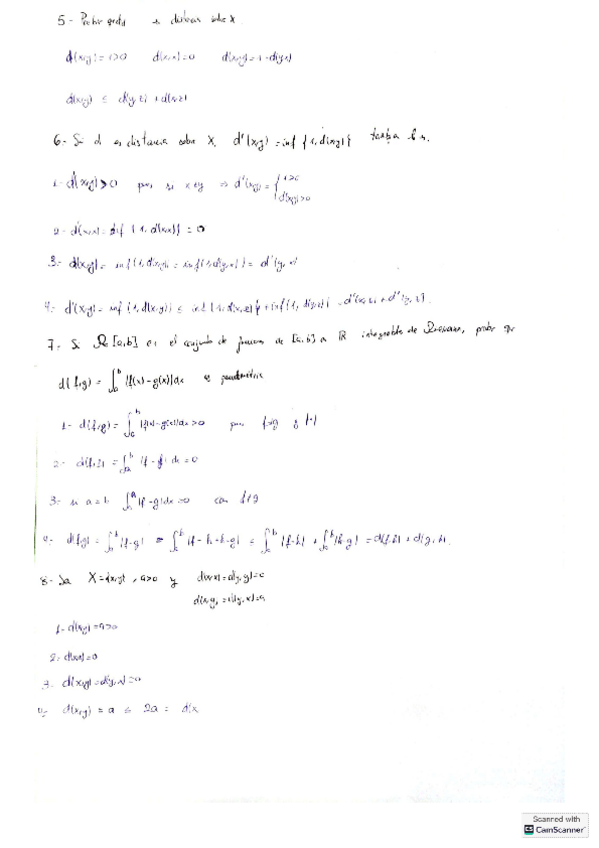 5- Probar es distancia sobre X.
d(x,y) = 1>0 d(x,x)=0 d(x,y)=1=d(y,x)
d(x,y) ≤ d(y,z) + d(x,z)
6- Si d es distancia sobre X, d'(x,y) = inf {1, d(x,y)}
1- d'(x,y)>0 para si x≠y ⇒ d'(x,y) = { 1>0
d(x,y)>0
2- d'(x,x)= inf {1, d(x,x)} = 0
3- d'(x,y)= inf{1, d(x,y)} = inf{1, d(y,x)} = d'(y,x)
4- d'(x,y)= inf {1, d(x,y)} ≤ inf {1, d(x,z)} + inf {1, d(y,z)} = d'(x,z) + d'(y,z).
7- Si [a,b] es el conjunto de funciones de [a,b] a ℝ integrables de Riemann, probar que
d(f,g) = ∫ₐᵇ |f(x)-g(x)|dx es
1- d(f,g) = ∫ₐᵇ |f(x)-g(x)|dx>0 para f≠g y
2- = ∫ₐᵇ dx =0
3- si a=b ∫ₐᵃ |f-g|dx=0 con f≠g
d(f,g)= ∫ₐᵇ |f-g| = ∫ₐᵇ |f-h+h-g| ≤ ∫ₐᵇ |f-h| + ∫ₐᵇ |h-g| = d(f,h) + d(g,h).
8- Sea X={x,y}, a>0 y d(x,x)=d(y,y)=0
d(x,y)=d(y,x)=a
1- d(x,y)=a>0
2- d(x,x)=0
3- d(x,y)=d(y,x)=0
d(x,y) = a ≤ 2a = d(x
Scanned with
CS CamScanner